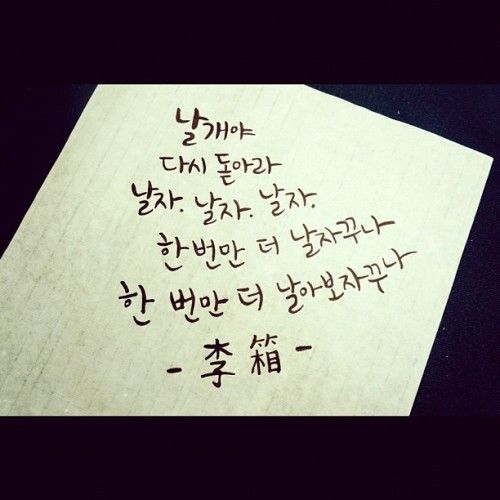 날개야
다시 돋아라
날자. 날자. 날자.
한번만 더 날자꾸나
한 번만 더 날아보자꾸나
- 李箱 -